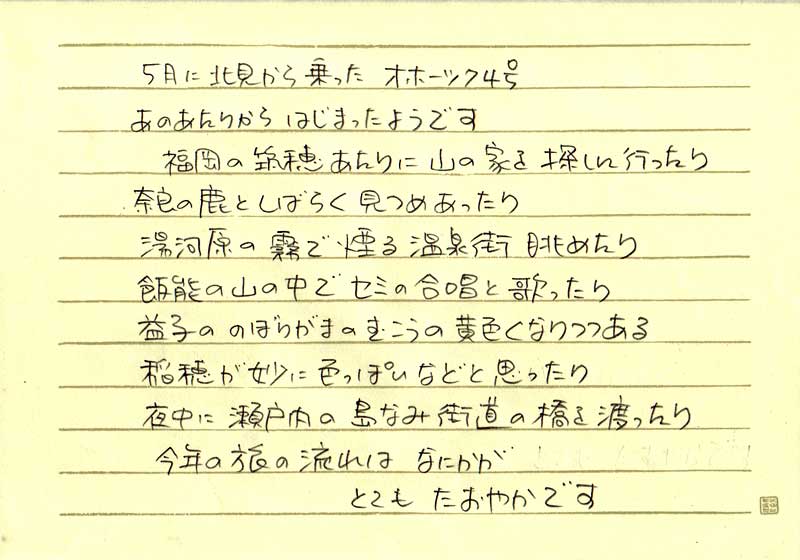 5月に北見から乗った オホーツク4号
あのあたりから はじまったようです
福岡の筑穂あたりに 山の家を 探しに行ったり
奈良の鹿としばらく見つめあったり
湯河原の霧で煙る温泉街 眺めたり
飯能の山の中で セミの合唱と歌ったり
益子の のぼりがまのむこうの黄色くなりつつある
稲穂が妙に色っぽいなどと思ったり
夜中に瀬戸内の島なみ街道の橋を渡ったり
今年の旅の流れは なにかが
とても たおやかです